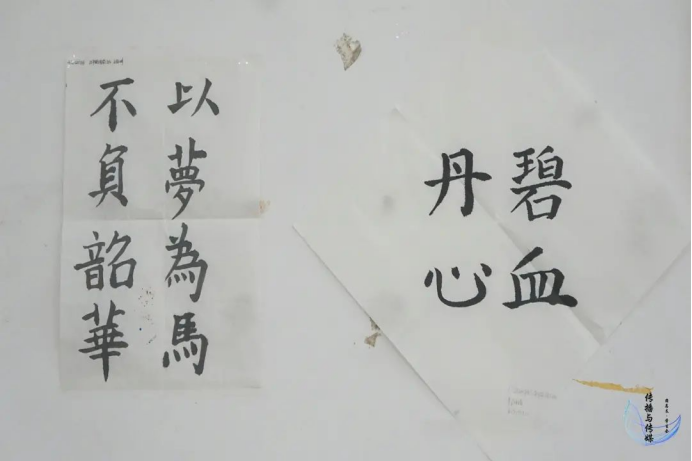 以夢為馬
不負韶華
碧血
丹心
传播与传媒